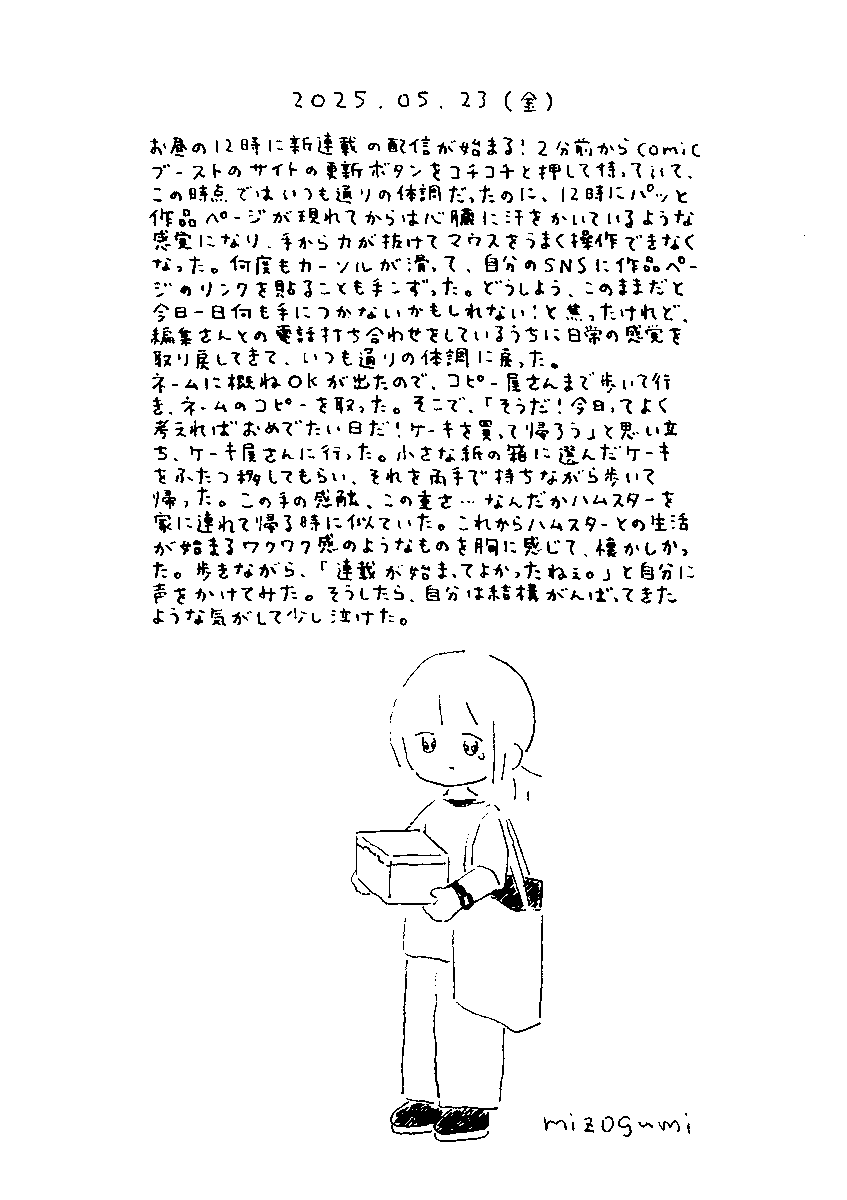 2025.05.23(金)
お昼の12時に新連載の配信が始まる!2分前からcomic
ブーストのサイトの更新ボタンをコチコチと押して待っていて、
この時点ではいつも通りの体調だったのに、12時にパッと
作品ページが現れてからは心臓に汗をかいているような
感覚になり、手から力が抜けてマウスをうまく操作できなく
なった。何度もカーソルが滑って、自分のSNSに作品ペー
ジのリンクを貼ることも手こずった。どうしよう、このままだと
今日一日何も手につかないかもしれない!と焦ったけれど、
編集さんとの電話打ち合わせをしているうちに日常の感覚を
取り戻してきて、いつも通りの体調に戻った。
ネームに概ねOKが出たので、コピー屋さんまで歩いて行
き、ネームのコピーを取った。そこで、「そうだ!今日ってよく
考えればおめでたい日だ!ケーキを買って帰ろう」と思い立
ち、ケーキ屋さんに行った。小さな紙の箱に選んだケーキ
をふたつ移してもらい、それを両手で持ちながら歩いて
帰った。この手の感触、この重さ…なんだかハムスターを
家に連れて帰る時に似ていた。これからハムスターとの生活
が始まるワクワク感のようなものを胸に感じて、懐かしかっ
た。歩きながら、「連載が始まってよかったねぇ。」と自分に
声をかけてみた。そうしたら、自分は結構がんばってきた
ような気がして少し泣けた。
mizogumi